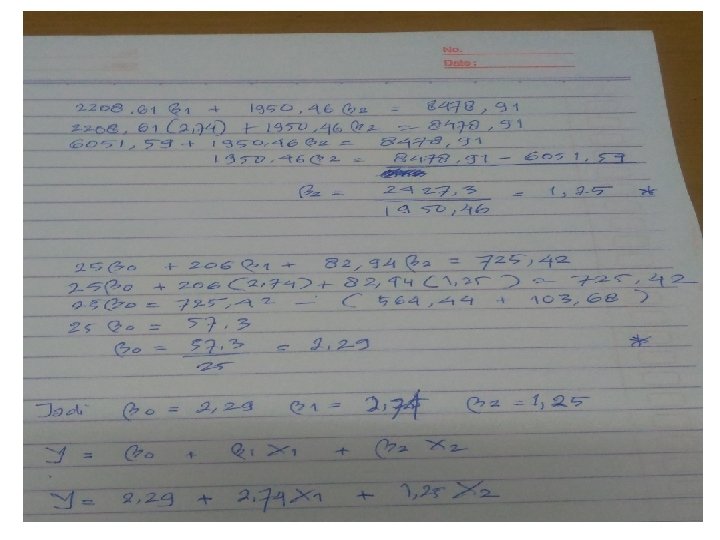 No.
Date :
2208,61 β1 + 1950,46 β2 = 8478,91
2208,61 (2,74) + 1950,46 β2 = 8478,91
6051,59 + 1950,46 β2 = 8478,91
1950,46 β2 = 8478,91 - 6051,59
β2 = 2427,3 = 1,25 *
1950,46
25β0 + 206 β1 + 82,94 β2 = 725,42
25β0 + 206 (2,74) + 82,94 (1,25) = 725,42
25β0 = 725,42 - (564,44 + 103,68)
25 β0 = 57,3
β0 = 57,3 = 2,29 *
25
Jadi β0 = 2,29 β1 = 2,74 β2 = 1,25
Y = β0 + β1 X1 + β2 X2
Y = 2,29 + 2,74 X1 + 1,25 X2